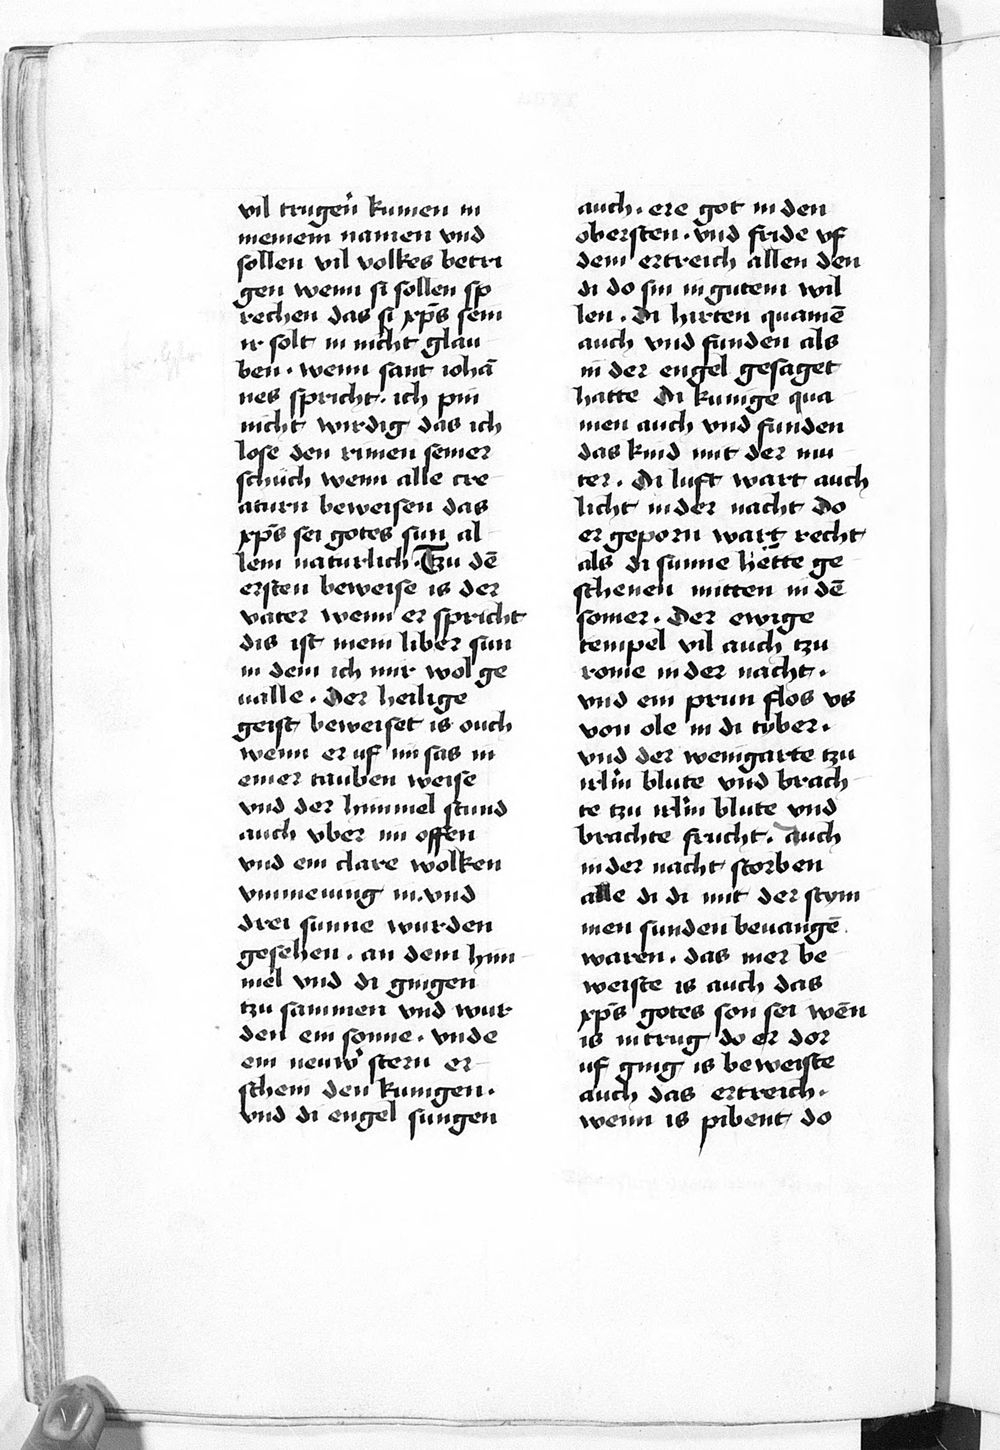 vil trugen̄ kumen in
meinem namen vnd
sollen vil volkes betri
gen wenn si sollen sp
rechen das si xp̄s sein
ir solt in nicht glau
ben · wenn sant iohā
nes spricht · ich pin
nicht wirdig das ich
lose den rimen seiner
schuch wenn alle cre
aturn beweisen das
xp̄s sei gotes sun al
lein naturlich · Tzu dē
ersten beweise is der
vater wenn er spricht
dis ist mein liber sun
in dem ich mir wol ge
ualle · Der heilige
geist beweiset is ouch
wenn er uf im sas in
einer tauben weise
vnd der himmel stund
auch vber im offen
vnd ein clare wolken
vmmeuing in · vnd
drei sunne wurden
gesehen · an dem him
mel vnd di gingen
tzu sammen vnd wur
den ein sonne · vnde
ein neuw̄ stern er
schein den kunigen ·
vnd di engel sungen
auch · ere got in den
obersten · vnd fride vf
dem ertreich allen den
di do sin in gutem wil
len · Di hirten quamē
auch vnd funden als
in der engel gesaget
hatte Di kunige qua
men auch vnd funden
das kind mit der mu
ter · Di luft wart auch
licht in der nacht Do
er geporn wart recht
als di sunne hette ge
schenen mitten in dē
somer · Der ewige
tempel vil auch tzu
rome in der nacht ·
vnd ein prun flos vs
von ole in di tyber ·
vnd der weingarte tzu
irlm̄ blute vnd brach
te tzu irlm̄ blute vnd
brachte frucht · auch
in der nacht storben
alle di di mit der stym
men sunden beuangē
waren · das mer be
weiste is auch das
xp̄s gotes son sei wēn
is in trug do er dor
uf ging is beweiste
auch das ertreich ·
wenn is pibent do